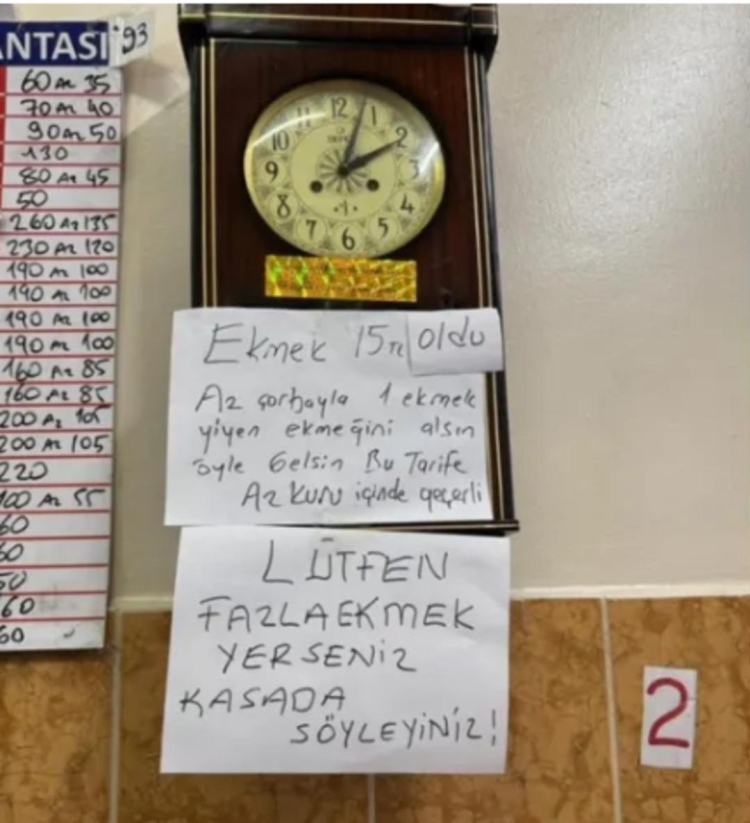 ANTASI
'93
60 Az 35
70 Az 40
90 Az 50
130
80 Az 45
50
260 Az 135
230 Az 120
190 Az 100
190 Az 100
190 Az 100
190 Az 100
160 Az 85
160 Az 85
200 Az 105
200 Az 105
220
100 Az 55
60
60
50
60
60
12
1
2
3
4
5
6
7
8
9
10
11
Ekmek 15 TL oldu
Az çorbayla 1 ekmek
yiyen ekmeğini alsın
öyle Gelsin Bu Tarife
Az Kuru içinde geçerli
LÜTFEN
FAZLA EKMEK
YERSENİZ
KASADA
SÖYLEYİNİZ!
2